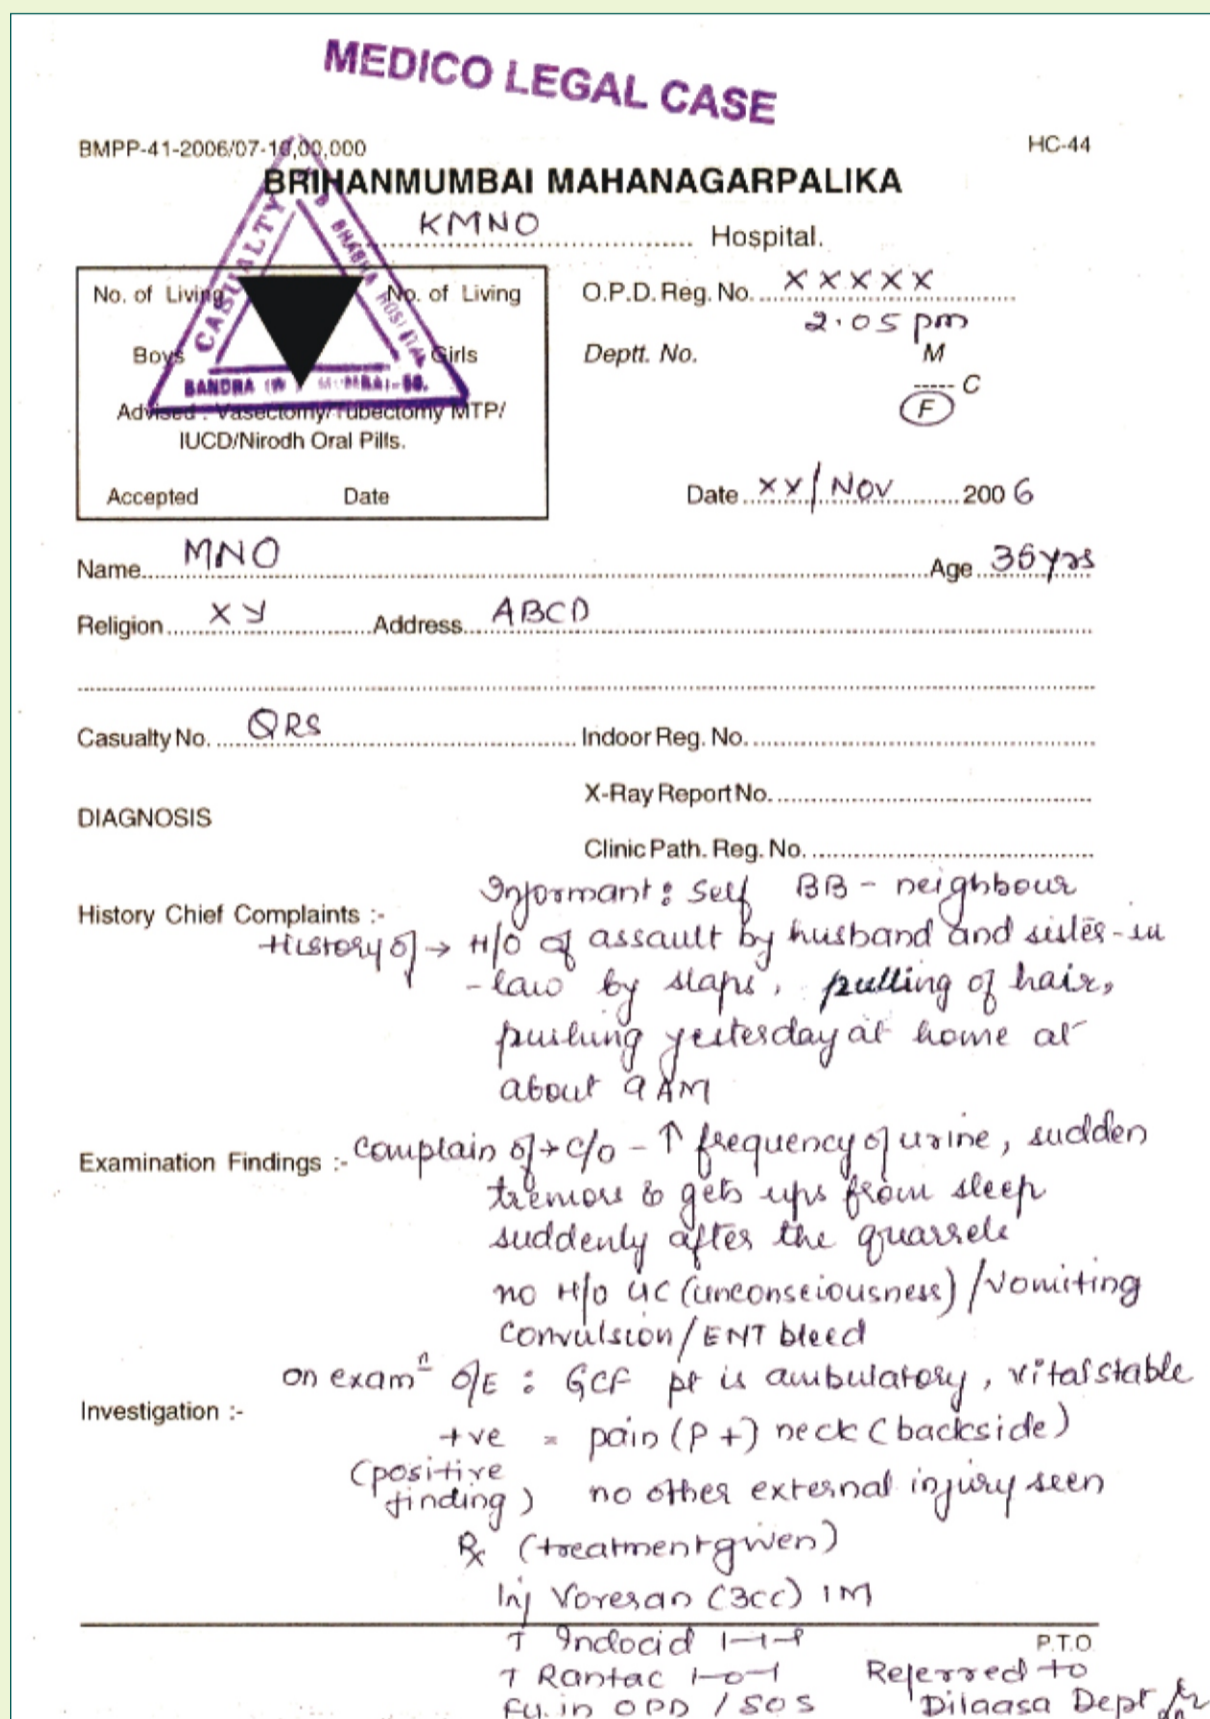 MEDICO LEGAL CASE
BMPP-41-2006/07-10,00,000
HC-44
BRIHANMUMBAI MAHANAGARPALIKA
KMNO Hospital.
CASUALTY
B. BHABHA HOSPITAL
BANDRA (W) MUMBAI-50.
No. of Living No. of Living
Boys Girls
Advised : Vasectomy/Tubectomy MTP/
IUCD/Nirodh Oral Pills.
Accepted Date
O.P.D. Reg. No. XXXXX
2.05 pm
Deptt. No. M
C
F
Date XX/NOV 2006
Name MNO Age 35yrs
Religion XY Address ABCD
Casualty No. QRS Indoor Reg. No.
X-Ray Report No.
DIAGNOSIS
Clinic Path. Reg. No.
Informant : Self BB - neighbour
History Chief Complaints :-
History of → H/O of assault by husband and sister-in
-law by slaps, pulling of hair,
pushing yesterday at home at
about 9 AM
Examination Findings :- Complain of → c/o - ↑ frequency of urine, sudden
tremors & gets ups from sleep
suddenly after the quarrels
no H/o UC (unconsciousness) / Vomiting
Convulsion / ENT bleed
on examⁿ O/E : GCF pt is ambulatory, vitals stable
Investigation :-
+ve = pain (P+) neck (backside)
(positive
finding) no other external injury seen
Rx (treatment given)
Inj Voresan (3cc) IM
T Indocid 1-1-1 P.T.O.
T Rantac 1-0-1 Referred to
FU. in OPD / SOS Dilaasa Dept